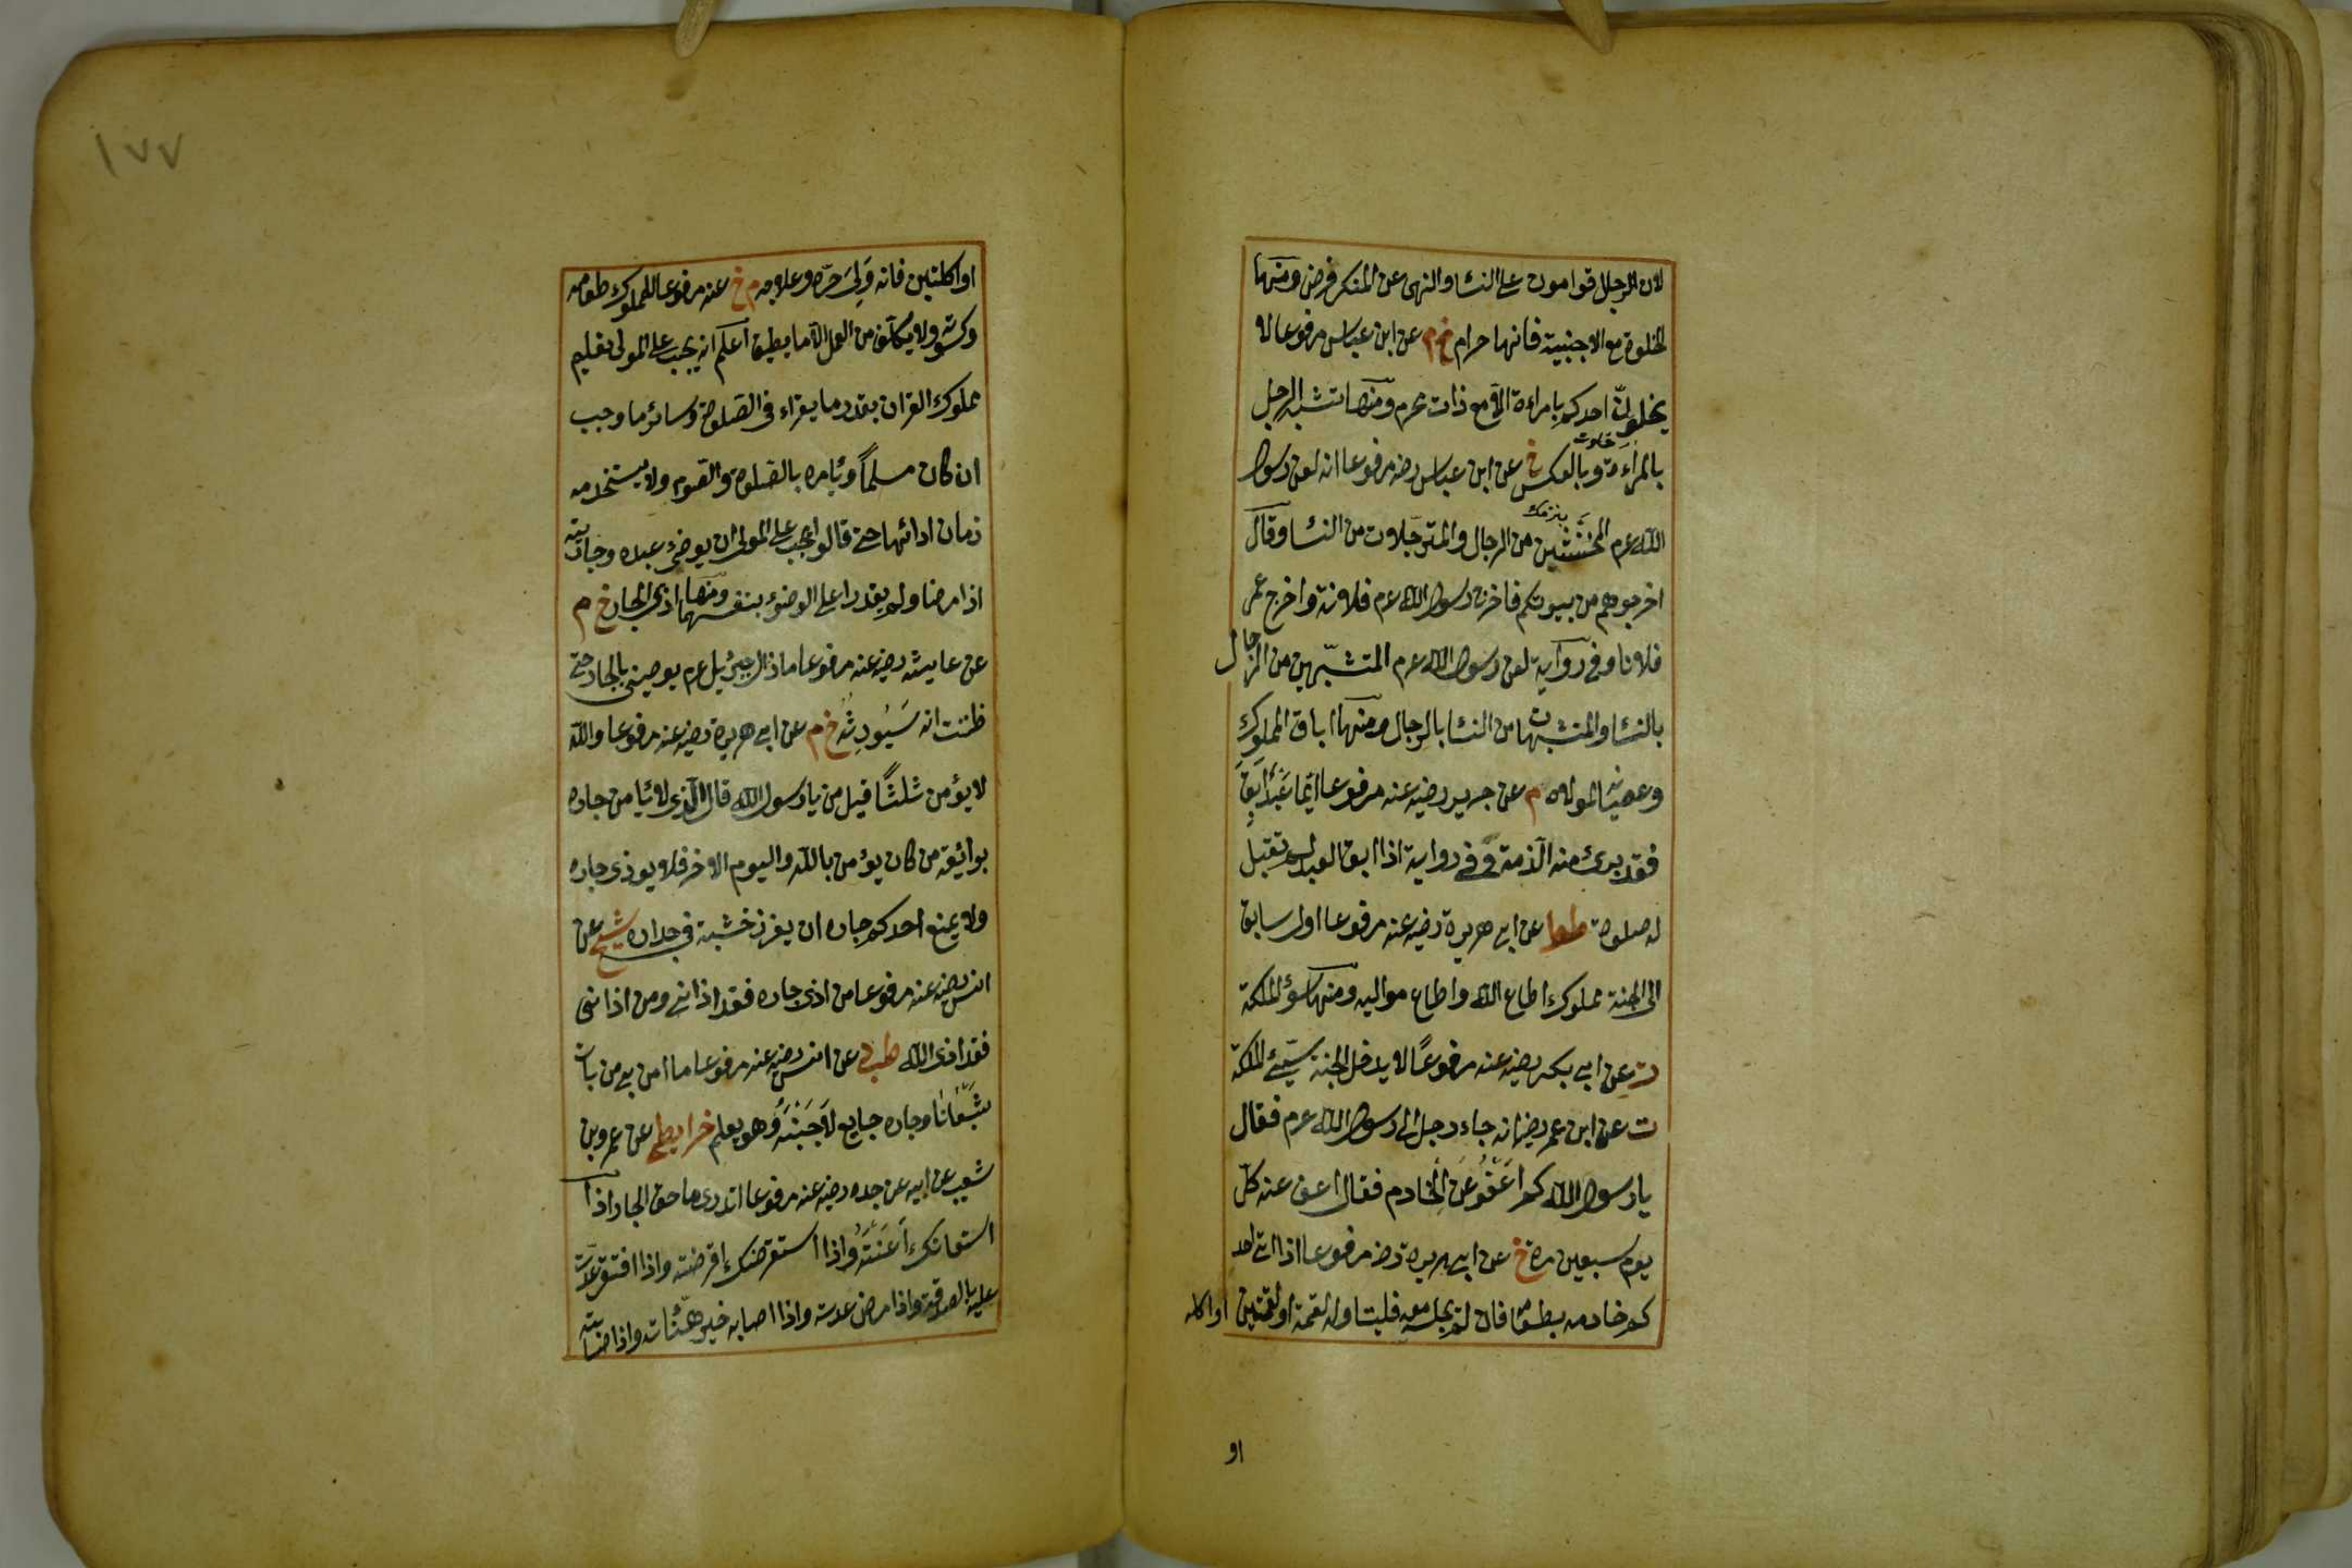 لان الرجال قوامون على النساء والنهى عن المنكر فرض ومنها
الخلوة مع الاجنبية فانها حرام خ م عن ابن عباس مرفوعا لا
يخلون احدكم بامراءة الا مع ذات محرم ومنها تشبه الرجل
بالمراءة وبالعكس خ عن ابن عباس رضه مرفوعا انه لعن رسول
الله عم المخنثين من الرجال والمترجلات من النساء وقال
اخرجوهم من بيوتكم فاخرج رسول الله عم فلانة واخرج عمر
فلانا وفى رواية لعن رسول الله عم المتشبهين من الرجال
بالنساء والمتشبهات من النساء بالرجال ومنها اباق المملوك
وعصيانه لمولاه م عن جرير رضيه عنه مرفوعا ايما عبد ابق
فقد برئ منه الذمة وفى رواية اذا ابق العبد لم تقبل
له صلوة طوا عن ابى هريرة رضيه عنه مرفوعا اول سابق
الى الجنة مملوك اطاع الله واطاع مواليه ومنها سوء الملكة
ت عن ابى بكر رضيه عنه مرفوعا لا يدخل الجنة سيئ الملكة
ت عن ابن عمر رضه انه جاء رجل الى رسول الله عم فقال
يا رسول الله كم اعفو عن الخادم فقال اعف عنه كل
يوم سبعين مرة خ عن ابى هريرة رضه مرفوعا اذا اتى احد
كم خادمه بطعام فان لم يجلسه معه فليناوله لقمة او لقمتين او اكلة
او
١٧٧
او اكلتين فانه ولى حره وعلاجه م خ عنه مرفوعا للمملوك طعامه
وكسوته ولا يكلف من العمل الا ما يطيق اعلم انه يجب على المولى تعليم
مملوك القران بقدر ما يقراء فى الصلوة وسائر ما وجب
ان كان مسلما ويأمره بالصلوة والصوم ولا يستخدمه
زمان ادائهما حتى قالوا يجب على المولى ان يوضئ عبده وجاريته
اذا مرضا ولم يقدرا على الوضوء بنفسهما ومنها اذى الجار خ م
عن عايشه رضيه عنه مرفوعا ما زال جبرئيل عم يوصينى بالجار حتى
ظننت انه سيورثه خ م عن ابى هريرة رضيه عنه مرفوعا والله
لا يؤمن ثلثا قيل من يا رسول الله قال الذى لا يأمن جاره
بوائقه من كان يؤمن بالله واليوم الاخر فلا يوذى جاره
ولا يمنع احدكم جاره ان يغرز خشبة فى جداره شيخ عن
انس رضيه عنه مرفوعا من اذى جاره فقد اذانى ومن اذانى
فقد اذى الله طب عن انس رضيه عنه مرفوعا ما امن بى من بات
شبعانا وجاره جايع لاجنبه وهو يعلم خرايطى عن عمرو بن
شعيب عن ابيه عن جده رضيه عنه مرفوعا اتدرى ما حق الجار اذا
استعانك اعنته واذا استقرضك اقرضته واذا افتقر عدت
عليه بالصدقة واذا مرض عدته واذا اصابه خير هنأته واذا اصابته